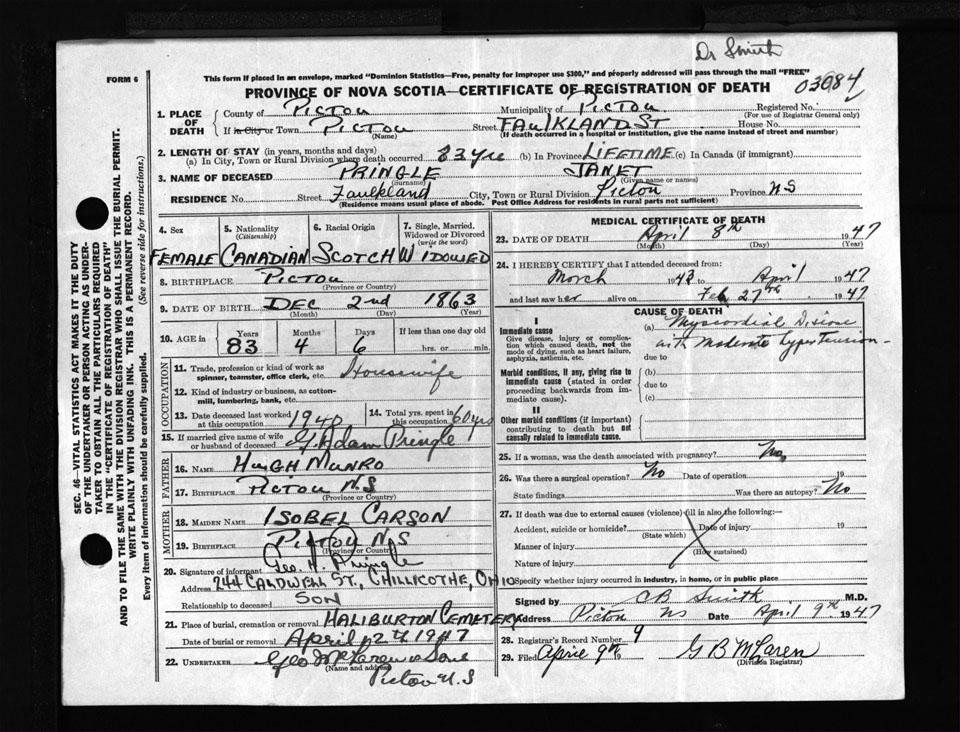 Dr Smith
FORM 6
This form if placed in an envelope, marked "Dominion Statistics—Free, penalty for improper use $300," and properly addressed will pass through the mail "FREE"
PROVINCE OF NOVA SCOTIA—CERTIFICATE OF REGISTRATION OF DEATH 03084
1. PLACE OF DEATH County of PICTOU Municipality of PICTOU Registered No.
(For use of Registrar General only)
If in City or Town PICTOU Street FAULKLAND ST House No.
(Name) (If death occurred in a hospital or institution, give the name instead of street and number)
2. LENGTH OF STAY (in years, months and days)
(a) In City, Town or Rural Division where death occurred 83 yrs (b) In Province LIFETIME (c) In Canada (if immigrant)
3. NAME OF DECEASED PRINGLE JANET
(Surname) (Given name or names)
RESIDENCE No. Street Faulkland City, Town or Rural Division Pictou Province NS
(Residence means usual place of abode. Post Office Address for residents in rural parts not sufficient)
4. Sex 5. Nationality (Citizenship) 6. Racial Origin 7. Single, Married, Widowed or Divorced (write the word)
FEMALE CANADIAN SCOTCH WIDOWED
8. BIRTHPLACE PICTOU
(Province or Country)
9. DATE OF BIRTH DEC 2nd 1863
(Month) (Day) (Year)
10. AGE in Years Months Days If less than one day old
83 4 6 hrs. or min.
OCCUPATION
11. Trade, profession or kind of work as spinner, teamster, office clerk, etc. Housewife
12. Kind of industry or business, as cotton-mill, lumbering, bank, etc.
13. Date deceased last worked at this occupation 1940 14. Total yrs. spent in this occupation 60 yrs
15. If married give name of wife or husband of deceased G. Adam Pringle
FATHER
16. NAME HUGH MUNRO
17. BIRTHPLACE PICTOU N.S
(Province or Country)
MOTHER
18. MAIDEN NAME ISOBEL CARSON
19. BIRTHPLACE PICTOU N.S
(Province or Country)
20. Signature of informant Geo. H. Pringle
Address 244 CALDWELL ST., CHILLICOTHE, OHIO
Relationship to deceased SON
21. Place of burial, cremation or removal HALIBURTON CEMETERY
Date of burial or removal April 12th 1947
22. UNDERTAKER Geo McLaren & Sons
(Name and address)
Pictou N.S
MEDICAL CERTIFICATE OF DEATH
23. DATE OF DEATH April 8th 1947
(Month) (Day) (Year)
24. I HEREBY CERTIFY that I attended deceased from:
March 1943 to April 1947
and last saw her alive on Feb 27th 1947
CAUSE OF DEATH
I
Immediate cause
Give disease, injury or complication which caused death, not the mode of dying, such as heart failure, asphyxia, asthenia, etc.
(a) Myocardial Disease
with Moderate hypertension
due to
Morbid conditions, if any, giving rise to immediate cause (stated in order proceeding backwards from immediate).
(b)
due to
(c)
II
Other morbid conditions (if important) contributing to death but not causally related to immediate cause.
25. If a woman, was the death associated with pregnancy? No.
26. Was there a surgical operation? No Date of operation 19
State findings Was there an autopsy? No
27. If death was due to external causes (violence) fill in also the following:—
Accident, suicide or homicide? Date of injury 19
(State which)
Manner of injury
(How sustained)
Nature of injury
Specify whether injury occurred in industry, in home, or in public place
Signed by CB Smith M.D.
Address Pictou NS Date April 9th 1947
28. Registrar's Record Number 9
29. Filed April 9th 19 G B McLaren
(Division Registrar)
SEC. 46—VITAL STATISTICS ACT MAKES IT THE DUTY
OF THE UNDERTAKER OR PERSON ACTING AS UNDER-
TAKER TO OBTAIN ALL THE PARTICULARS REQUIRED
IN THE "CERTIFICATE OF REGISTRATION OF DEATH"
AND TO FILE THE SAME WITH THE DIVISION REGISTRAR WHO SHALL ISSUE THE BURIAL PERMIT.
WRITE PLAINLY WITH UNFADING INK. THIS IS A PERMANENT RECORD.
Every item of information should be carefully supplied. (See reverse side for instructions.)